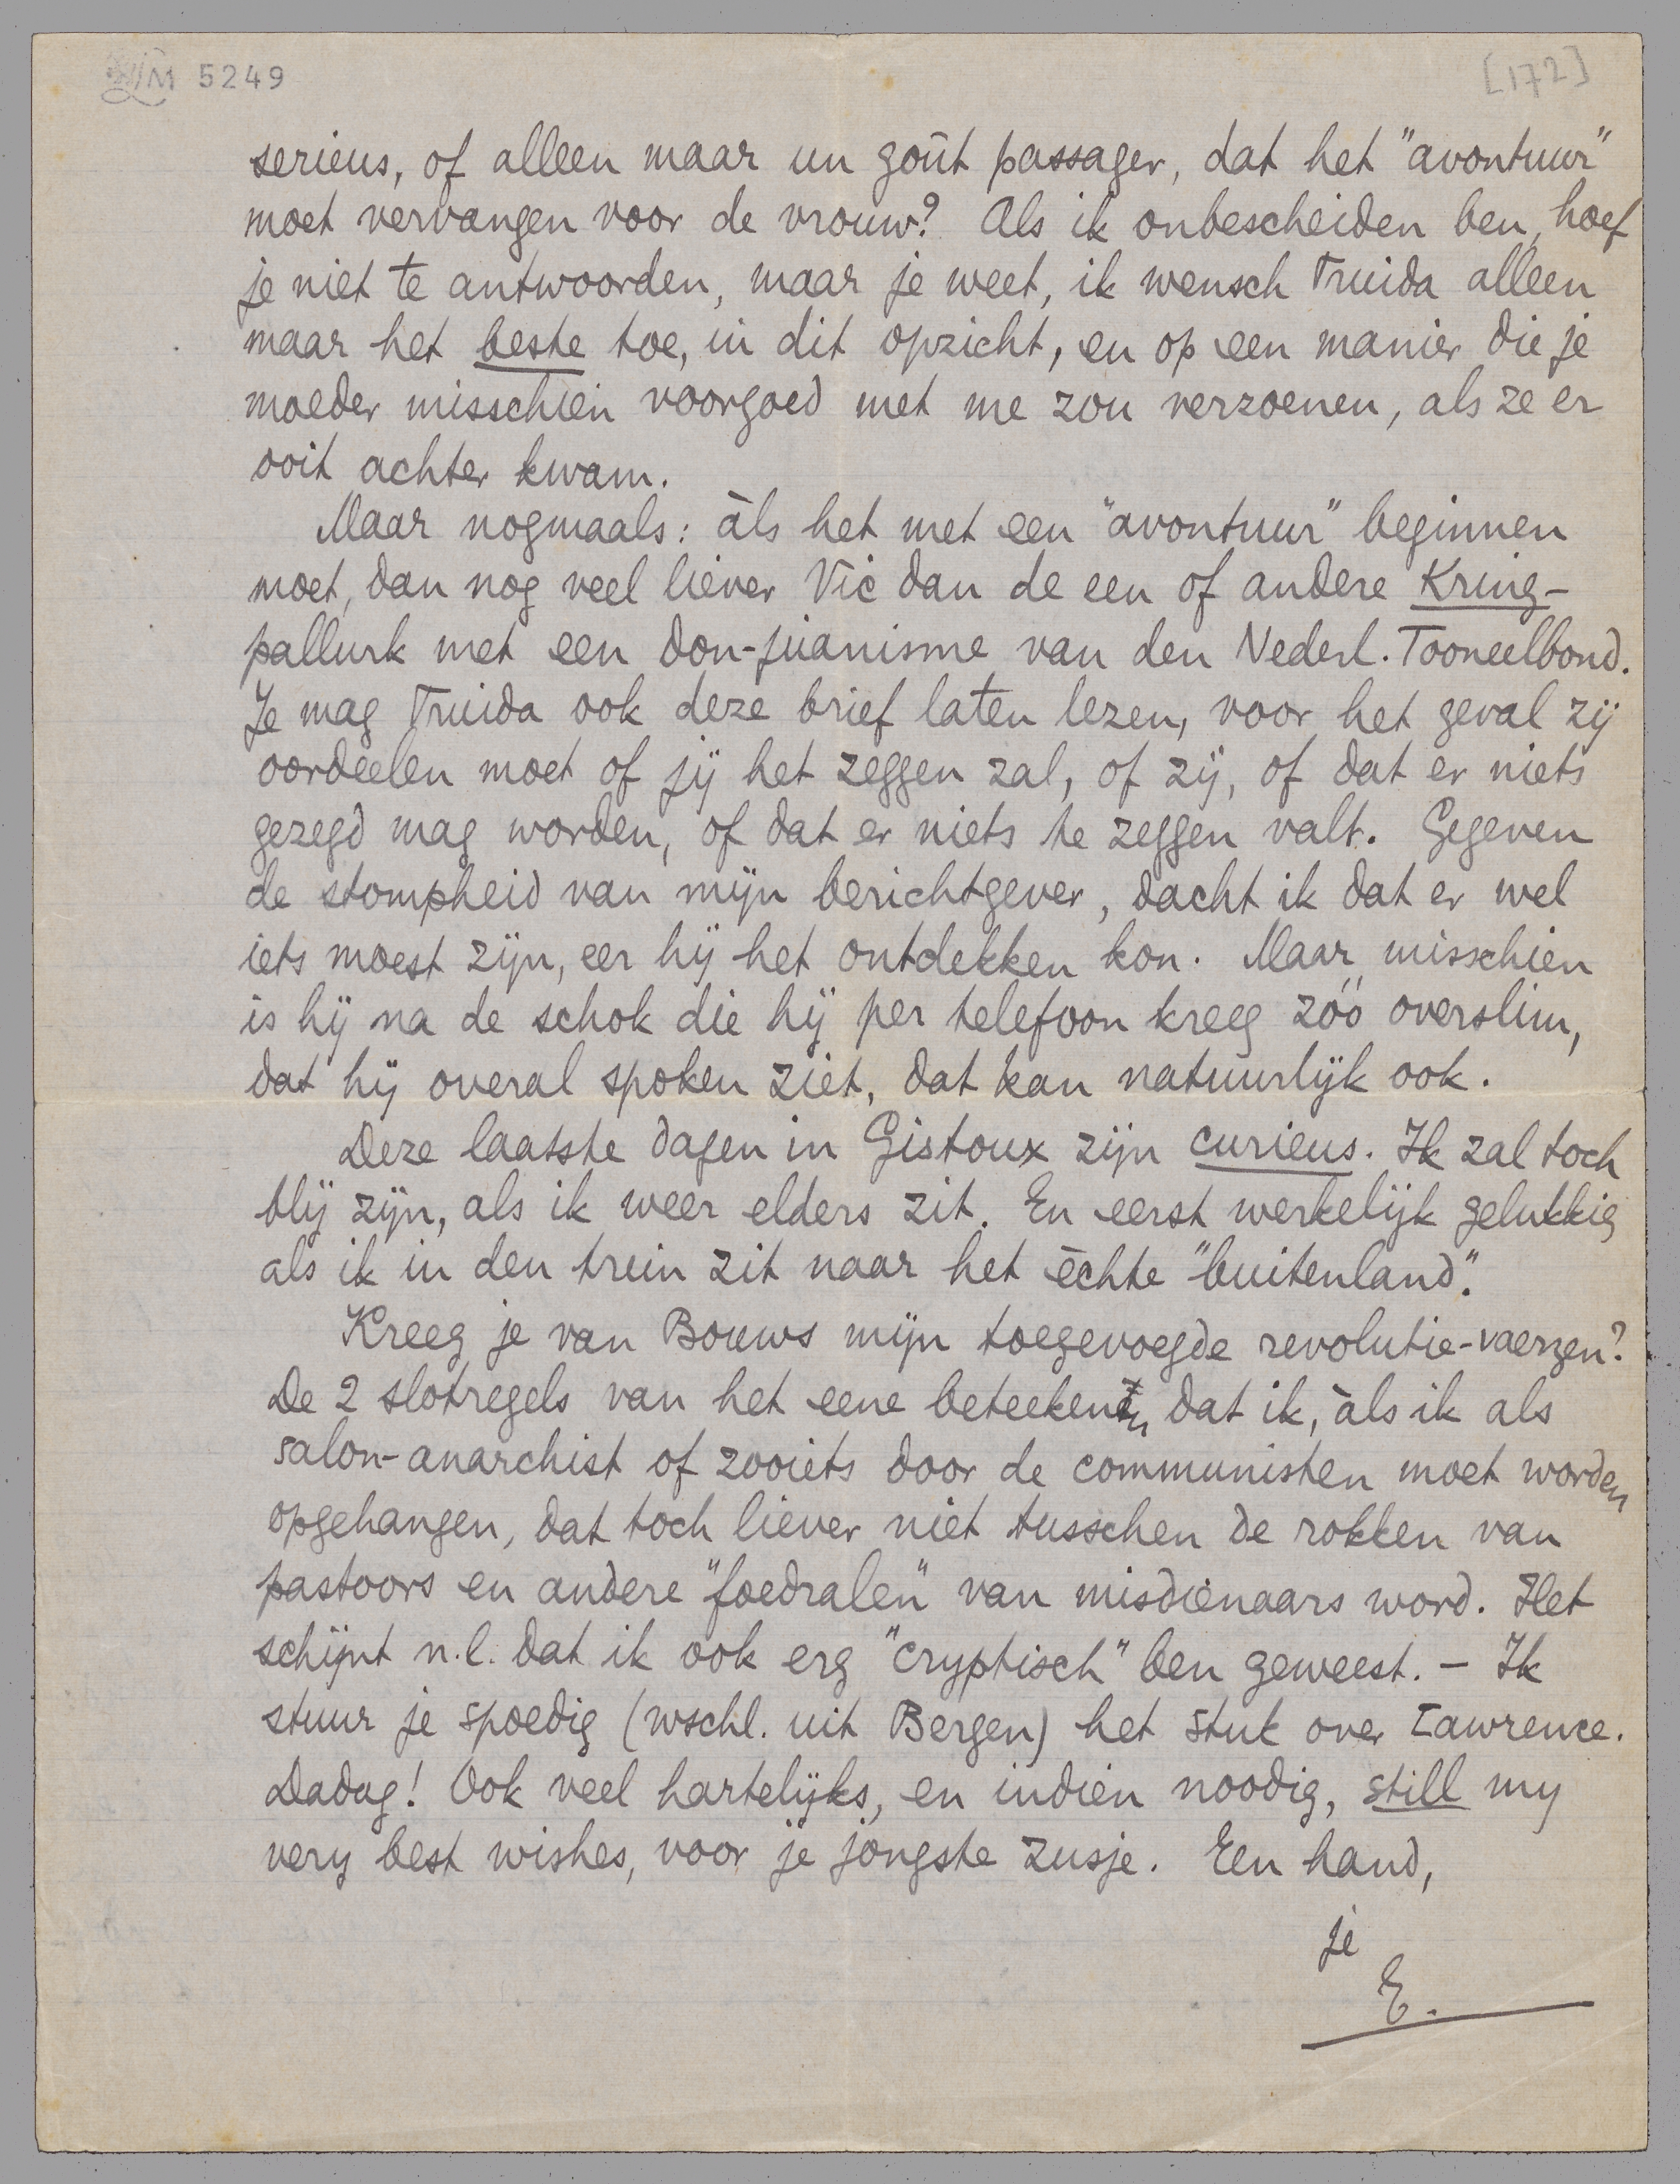 M 5249
[172]
serieus, of alleen maar un goût passager, dat het "avontuur"
moet vervangen voor de vrouw? Als ik onbescheiden ben, hoef
je niet te antwoorden, maar je weet, ik wensch Truida alleen
maar het beste toe, in dit opzicht, en op een manier die je
moeder misschien voorgoed met me zou verzoenen, als ze er
ooit achter kwam.
Maar nogmaals: àls het met een "avontuur" beginnen
moet, dan nog veel liever Vic dan de een of andere Kring-
pallurk met een don-juanisme van den Nederl. Tooneelbond.
Je mag Truida ook deze brief laten lezen, voor het geval zij
oordeelen moet of jij het zeggen zal, of zij, of dat er niets
gezegd mag worden, of dat er niets te zeggen valt. Gegeven
de stompheid van mijn berichtgever, dacht ik dat er wel
iets moest zijn, eer hij het ontdekken kon. Maar misschien
is hij na de schok die hij per telefoon kreeg zóó overslim,
dat hij overal spoken ziet, dat kan natuurlijk ook.
Deze laatste dagen in Gistoux zijn curieus. Ik zal toch
blij zijn, als ik weer elders zit. En eerst werkelijk gelukkig
als ik in den trein zit naar het èchte "buitenland".
Kreeg je van Bouws mijn toegevoegde revolutie-vaerzen?
De 2 slotregels van het eene beteekenen dat ik, àls ik als
salon-anarchist of zooiets door de communisten moet worden
opgehangen, dat toch liever niet tusschen de rokken van
pastoors en andere "foedralen" van misdienaars word. Het
schijnt n.l. dat ik ook erg "cryptisch" ben geweest. – Ik
stuur je spoedig (wschl. uit Bergen) het stuk over Lawrence.
Dadag! Ook veel hartelijks, en indien noodig, still my
very best wishes, voor je jongste zusje. Een hand,
je
E.